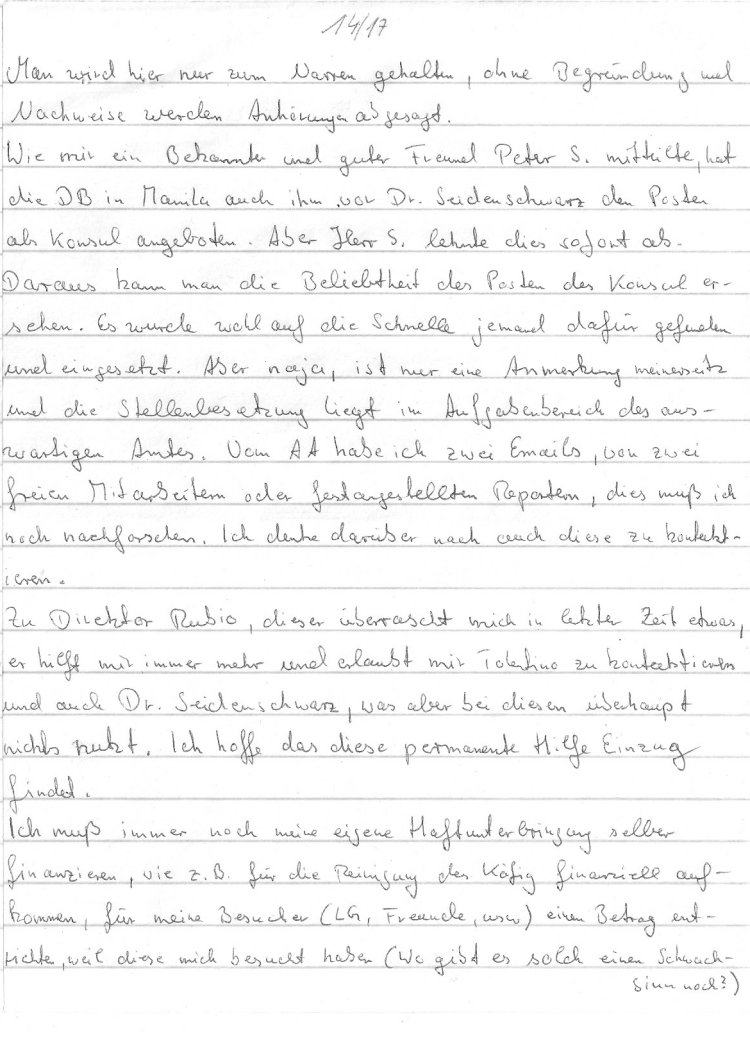 14/17
Man wird hier nur zum Narren gehalten, ohne Begründung und
Nachweise werden Anhörungen abgesagt.
Wie mir ein Bekannter und guter Freund Peter S. mitteilte, hat
die DB in Manila auch ihm vor Dr. Seidenschwarz den Posten
als Konsul angeboten. Aber Herr S. lehnte dies sofort ab.
Daraus kann man die Beliebtheit des Posten des Konsul er-
sehen. Es wurde wohl auf die Schnelle jemand dafür gefunden
und eingesetzt. Aber naja, ist nur eine Anmerkung meinerseitz
und die Stellenbesetzung liegt im Aufgabenbereich des aus-
wartigen Amtes. Vom AA habe ich zwei Emails, von zwei
freien Mitarbeitern oder festangestellten Reportern, dies muß ich
noch nachforschen. Ich denke darüber nach auch diese zu kontakt-
ieren.
Zu Direktor Rubio, dieser überrascht mich in letzter Zeit etwas,
er hilft mir immer mehr und erlaubt mir Tolentino zu kontaktieren
und auch Dr. Seidenschwarz, was aber bei diesen überhaupt
nichts nutzt. Ich hoffe das diese permanente Hilfe Einzug
findet.
Ich muß immer noch meine eigene Haftunterbringung selber
finanzieren, wie z.B. für die Reinigung des Käfig finanziell auf-
kommen, für meine Besucher (LG, Freunde, usw) einen Betrag ent-
richten, weil diese mich besucht haben (Wo gibt es solch einen Schwach-
sinn noch?)